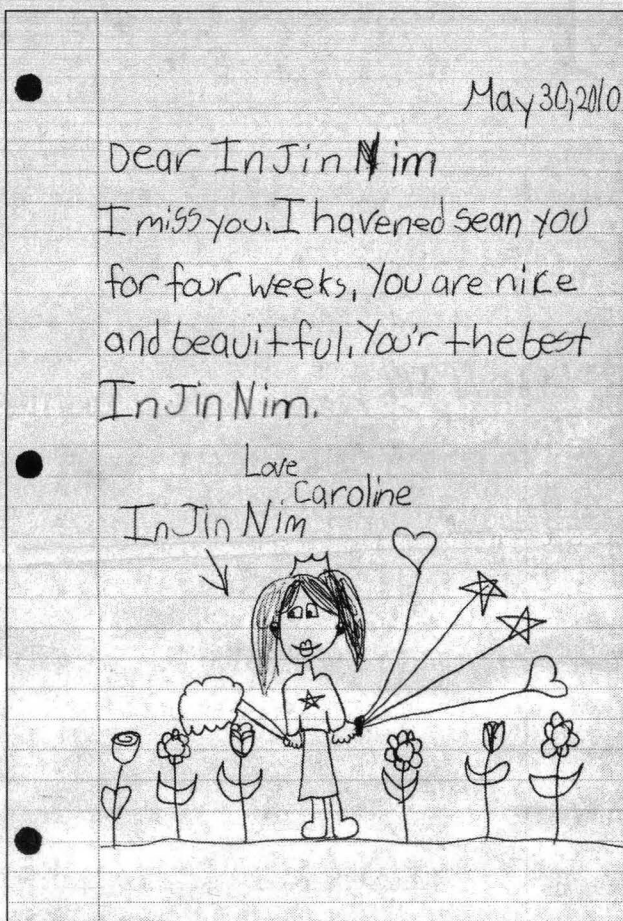 May 30, 2010
Dear In Jin Nim
I miss you. I havened sean you
for four weeks. You are nice
and beauitful. You'r the best
In Jin Nim.
Love
Caroline
In Jin Nim